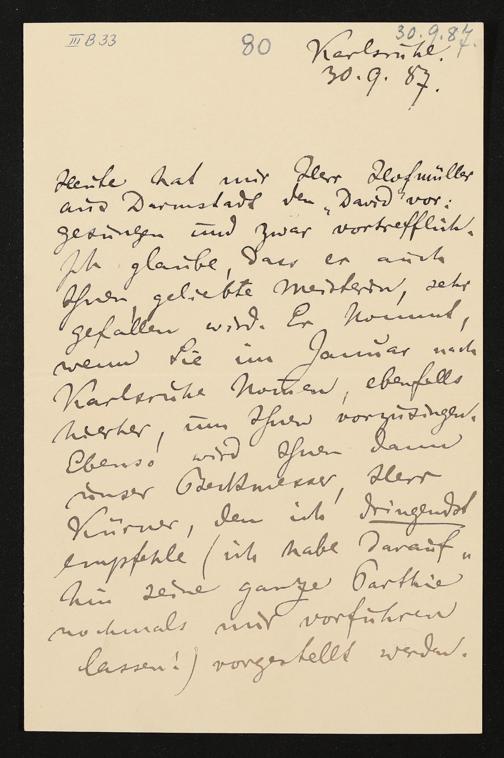 III B 33
80
30.9.87.
Karlsruhe.
30.9.87.
Heute hat mir Herr Hofmüller
aus Darmstadt den „David" vor:
gesungen und zwar vortrefflich.
Ich glaube, dass er auch
Ihnen, geliebte Meisterin, sehr
gefallen wird. Er kommt,
wenn Sie im Januar nach
Karlsruhe kom̄en, ebenfalls
hierher, um Ihnen vorzusingen.
Ebenso wird Ihnen dann
unser Beckmesser, Herr
Kürner, den ich dringendst
empfehle (ich habe darauf„
hin seine ganze Parthie
nochmals mir vorführen
lassen!) vorgestellt werden.